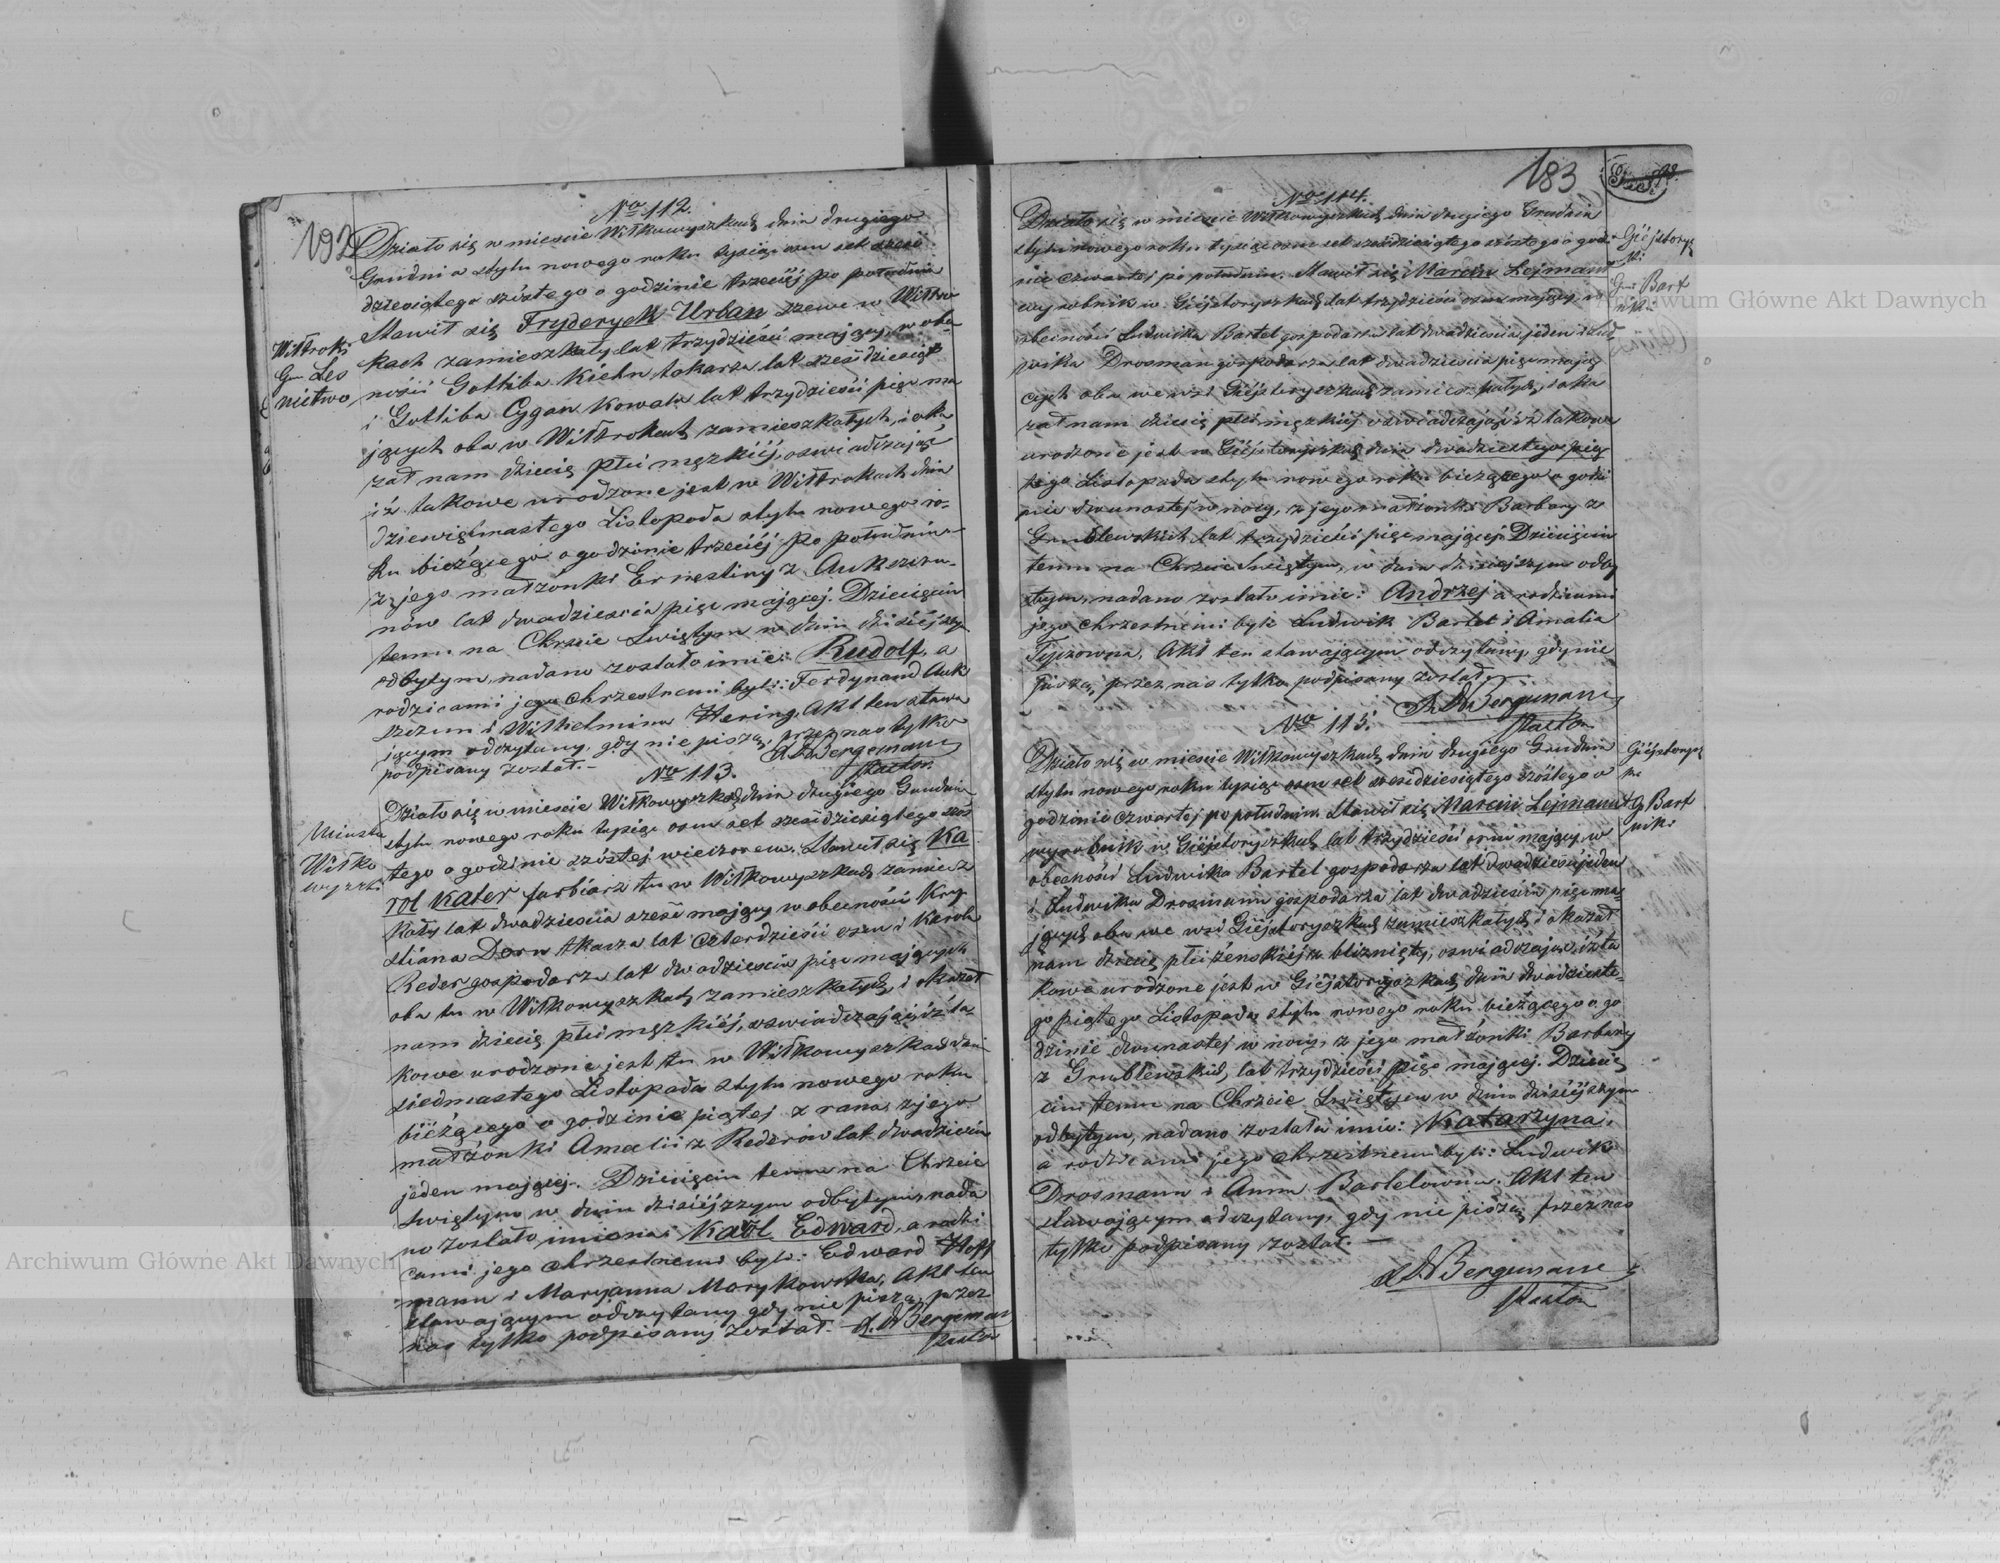 192
No 112.
Działo się w mieście Wiłkowyszkach dnia drugiego
Grudnia stylu nowego roku tysiąc osm set sześć
dziesiątego szóstego o godzinie trzeciéj po południu
Stawił się Fryderych Urban szewc w Wiłtro
kach zamieszkały lat trzydzieści mający, w obe-
ności Gottliba Kiehn tokarza lat sześdziesiąt
i Gottliba Cygan Kowala lat trzydzieści pięc ma
jących oba w Wiłtrokach zamieszkałych, i oka
zał nam dziecię płci męzkiéj, oswiadczając
iż takowe urodzone jest w Wiłtrokach dnia
dziewiętnastego Listopada stylu nowego ro-
ku bieżącego o godzinie trzeciéj po południu
z jego małżonki Ernestiny z Aukszru-
nów lat dwadzieścia pięc mającéj. Dziecięciu
temu na Chrzcie Swiętym w dniu dzisiéjszym
odbytym, nadano zostało imie: Rudolf, a
rodzicami jego chrzestnemi byli: Ferdynand Auk
szrun i Wilhelmina Hering. Akt ten stawa
jącym odczytany, gdy nie piszą, przez nas tylko
podpisany został.
Bergemann
Pastor
Wiłtroki
Gm Les
nictwo
No 113.
Działo się w mieście Wiłkowyszkach dnia drugiego Grudnia
stylu nowego roku tysiąc osm set sześdziesiątego szós
tego o godzinie szóstej wieczorem. Stawił się Ka
rol Kater farbiarz tu w Wiłkowyszkach zamiesz
kały lat dwadzieścia sześć mający w obecności Kry
stiana Dorn tkacza lat czterdzieści osm i Karola
Reder gospodarza lat dwadzieścia pięc mających
oba tu w Wiłkowyszkach zamieszkałych, i okazał
nam dziecię płci męzkiéj, oswiadczając iż ta-
kowe urodzone jest tu w Wiłkowyszkach dnia
siedmastego Listopada stylu nowego roku
bieżącego o godzinie piątej z rana, z jego
małżonki Amelii z Rederów lat dwadzieścia
jeden mającéj. Dziecięciu temu na Chrzcie
Swiętym w dniu dzisiéjszym odbytym, nada
no zostało imiona: Karol Edward, a rodzi
cami jego chrzestnemi byli: Edward Hoff
mann i Maryanna Morykowska. Akt ten
stawającym odczytany gdy nie piszą, przez
nas tylko podpisany został.
Bergemann
Pastor
Miasto
Wiłko
wyszki
183
No 114.
Działo się w mieście Wiłkowyszkach dnia drugiego Grudnia
stylu nowego roku tysiąc osm set sześdziesiątego szóstego o godzi-
nie czwartéj po południu. Stawił się Marcin Lejmann
wyrobnik w Giéjstoryszkach lat trzydzieści osm mający, w
obecności Ludwika Bartel gospodarza lat dwadzieścia jeden i Lud
wika Drosman gospodarza lat dwadzieścia pięc mają
cych oba we wsi Giéjstoryszkach zamieszkałych, i oka
zał nam dziecię płci męzkiéj oswiadczając iż takowe
urodzone jest w Giéjstoryszkach dnia dwadziestego pią
tego Listopada stylu nowego roku bieżącego o godzi
nie dwunastéj w nocy, z jego małżonki Barbary z
Grublewskich lat trzydzieści pięc mającéj. Dziecięciu
temu na Chrzcie Swiętym, w dniu dzisiejszym odby
tym, nadano zostało imie: Andrzej a rodzicami
jego chrzestnemi byli Ludwik Bartel i Amalia
Akt ten stawającym odczytany, gdy nie
piszą, przez nas tylko podpisany został.
Bergemann
Pastor
Giéjstorysz
ki
Gmi Bart
niki
No 115.
Działo się w mieście Wiłkowyszkach dnia drugiego Grudnia
stylu nowego roku tysiąc osm set sześdziesiątego szóstego o
godzinie czwartej po południu. Stawił się Marcin Lejmann
wyrobnik w Giéjstoryszkach lat trzydzieści osm mający, w
obecności Ludwika Bartel gospodarza lat dwadzieścia jeden
i Ludwika Drosmann gospodarza lat dwadzieścia pięc ma-
jących oba we wsi Giéjstoryszkach zamieszkałych i okazał
nam dziecię płci żeńskiéj z bliznięt, oswiadczając, iż ta
kowe urodzone jest w Giéjstoryszkach dnia dwadzieste-
go piątego Listopada stylu nowego roku bieżącego o go
dzinie dwunastej w nocy, z jego małżonki Barbary
z Grublewskich, lat trzydzieści pięc mającéj. Dziecię
ciu temu na Chrzcie Swiętym w dniu dzisiéjszym
odbytym, nadano zostało imie: Katarzyna,
a rodzicami jego chrzestnemi byli: Ludwik
Drosmann i Anna Bartelowna. Akt ten
stawającym odczytany, gdy nie piszą, przez nas
tylko podpisany został.
Bergemann
Pastor
Giéjstorysz
ki
G. Bart
niki
Archiwum Główne Akt Dawnych
Archiwum Główne Akt Dawnych